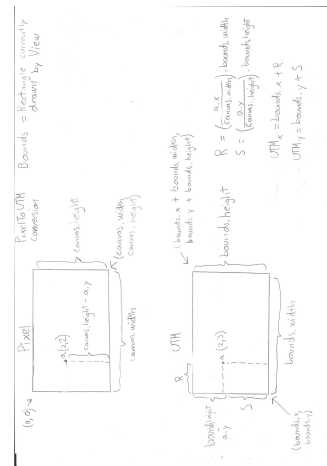 Pixel To UTM
Conversion
Bounds = Rectangle currently
drawn by View
(0,0)
Pixel
a(2,2)
canvas.height
canvas.height - a.y
canvas.width
(canvas.width,
canvas.height)
UTM
(bounds.x + bounds.width,
bounds.y + bounds.height)
R
a(2,3)
bounds.height
a.y
S
bounds.height
bounds.width
(bounds.x,
bounds.y)
R = (a.x / canvas.width) · bounds.width
S = (a.y / canvas.height) · bounds.height
UTMx = bounds.x + R
UTMy = bounds.y + S